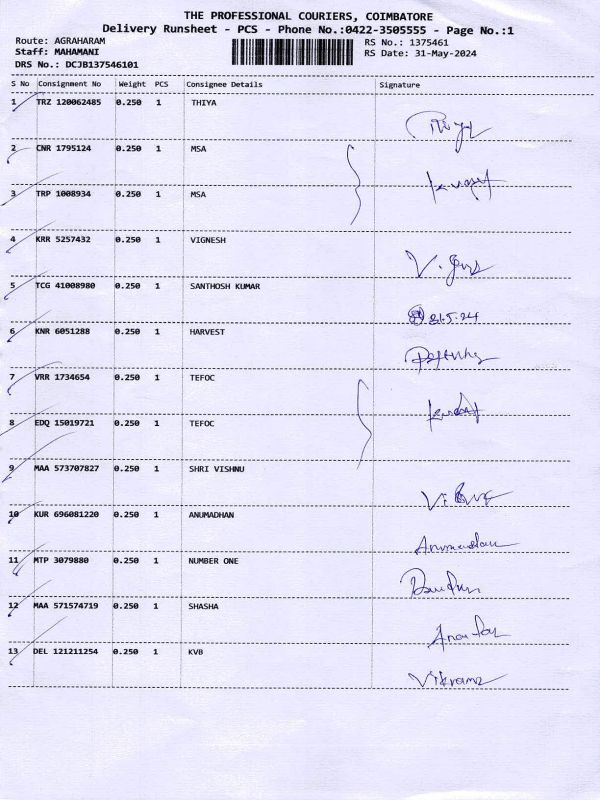 THE PROFESSIONAL COURIERS, COIMBATORE
Delivery Runsheet - PCS - Phone No.:0422-3505555 - Page No.:1
Route: AGRAHARAM RS No.: 1375461
Staff: MAHAMANI RS Date: 31-May-2024
DRS No.: DCJB137546101
S No Consignment No Weight PCS Consignee Details Signature
1 TRZ 120062485 0.250 1 THIYA
2 CNR 1795124 0.250 1 MSA
3 TRP 1008934 0.250 1 MSA
4 KRR 5257432 0.250 1 VIGNESH
5 TCG 41008980 0.250 1 SANTHOSH KUMAR
31.5.24
6 KNR 6051288 0.250 1 HARVEST
7 VRR 1734654 0.250 1 TEFOC
8 EDQ 15019721 0.250 1 TEFOC
9 MAA 573707827 0.250 1 SHRI VISHNU
10 KUR 696081220 0.250 1 ANUMADHAN
11 MTP 3079880 0.250 1 NUMBER ONE
12 MAA 571574719 0.250 1 SHASHA
13 DEL 121211254 0.250 1 KVB